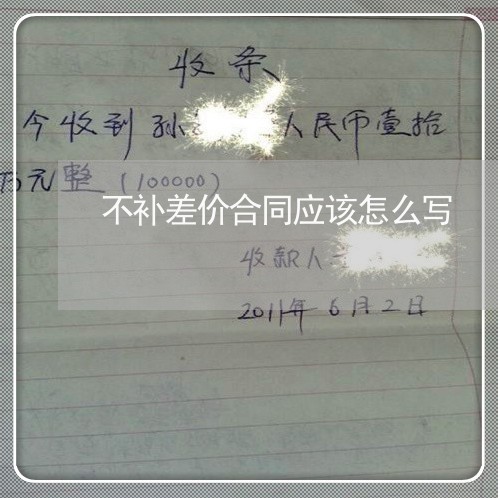 收条
今收到孙 人民币壹拾
万元整（100000）
不补差价合同应该怎么写
收款人
2011年6月2日